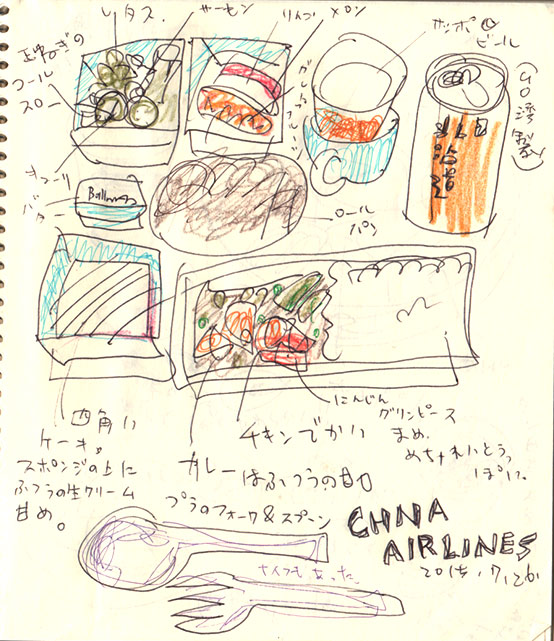 レタス.
サーモン
りんご
メロン
サッポロ
ビール
玉ねぎの
コール
スロー
きゅうり
バター
ロール
パン
にんじん
グリンピース
まめ.
めちゃれいとうっ
ぽい。
チキンでかい
四角い
ケーキ。
スポンジの上に
ふつうの生クリーム
甘め。
カレーはふつうの甘口
プラのフォーク&スプーン
ナイフもあった.
CHNA
AIRLINES
2015.7.26